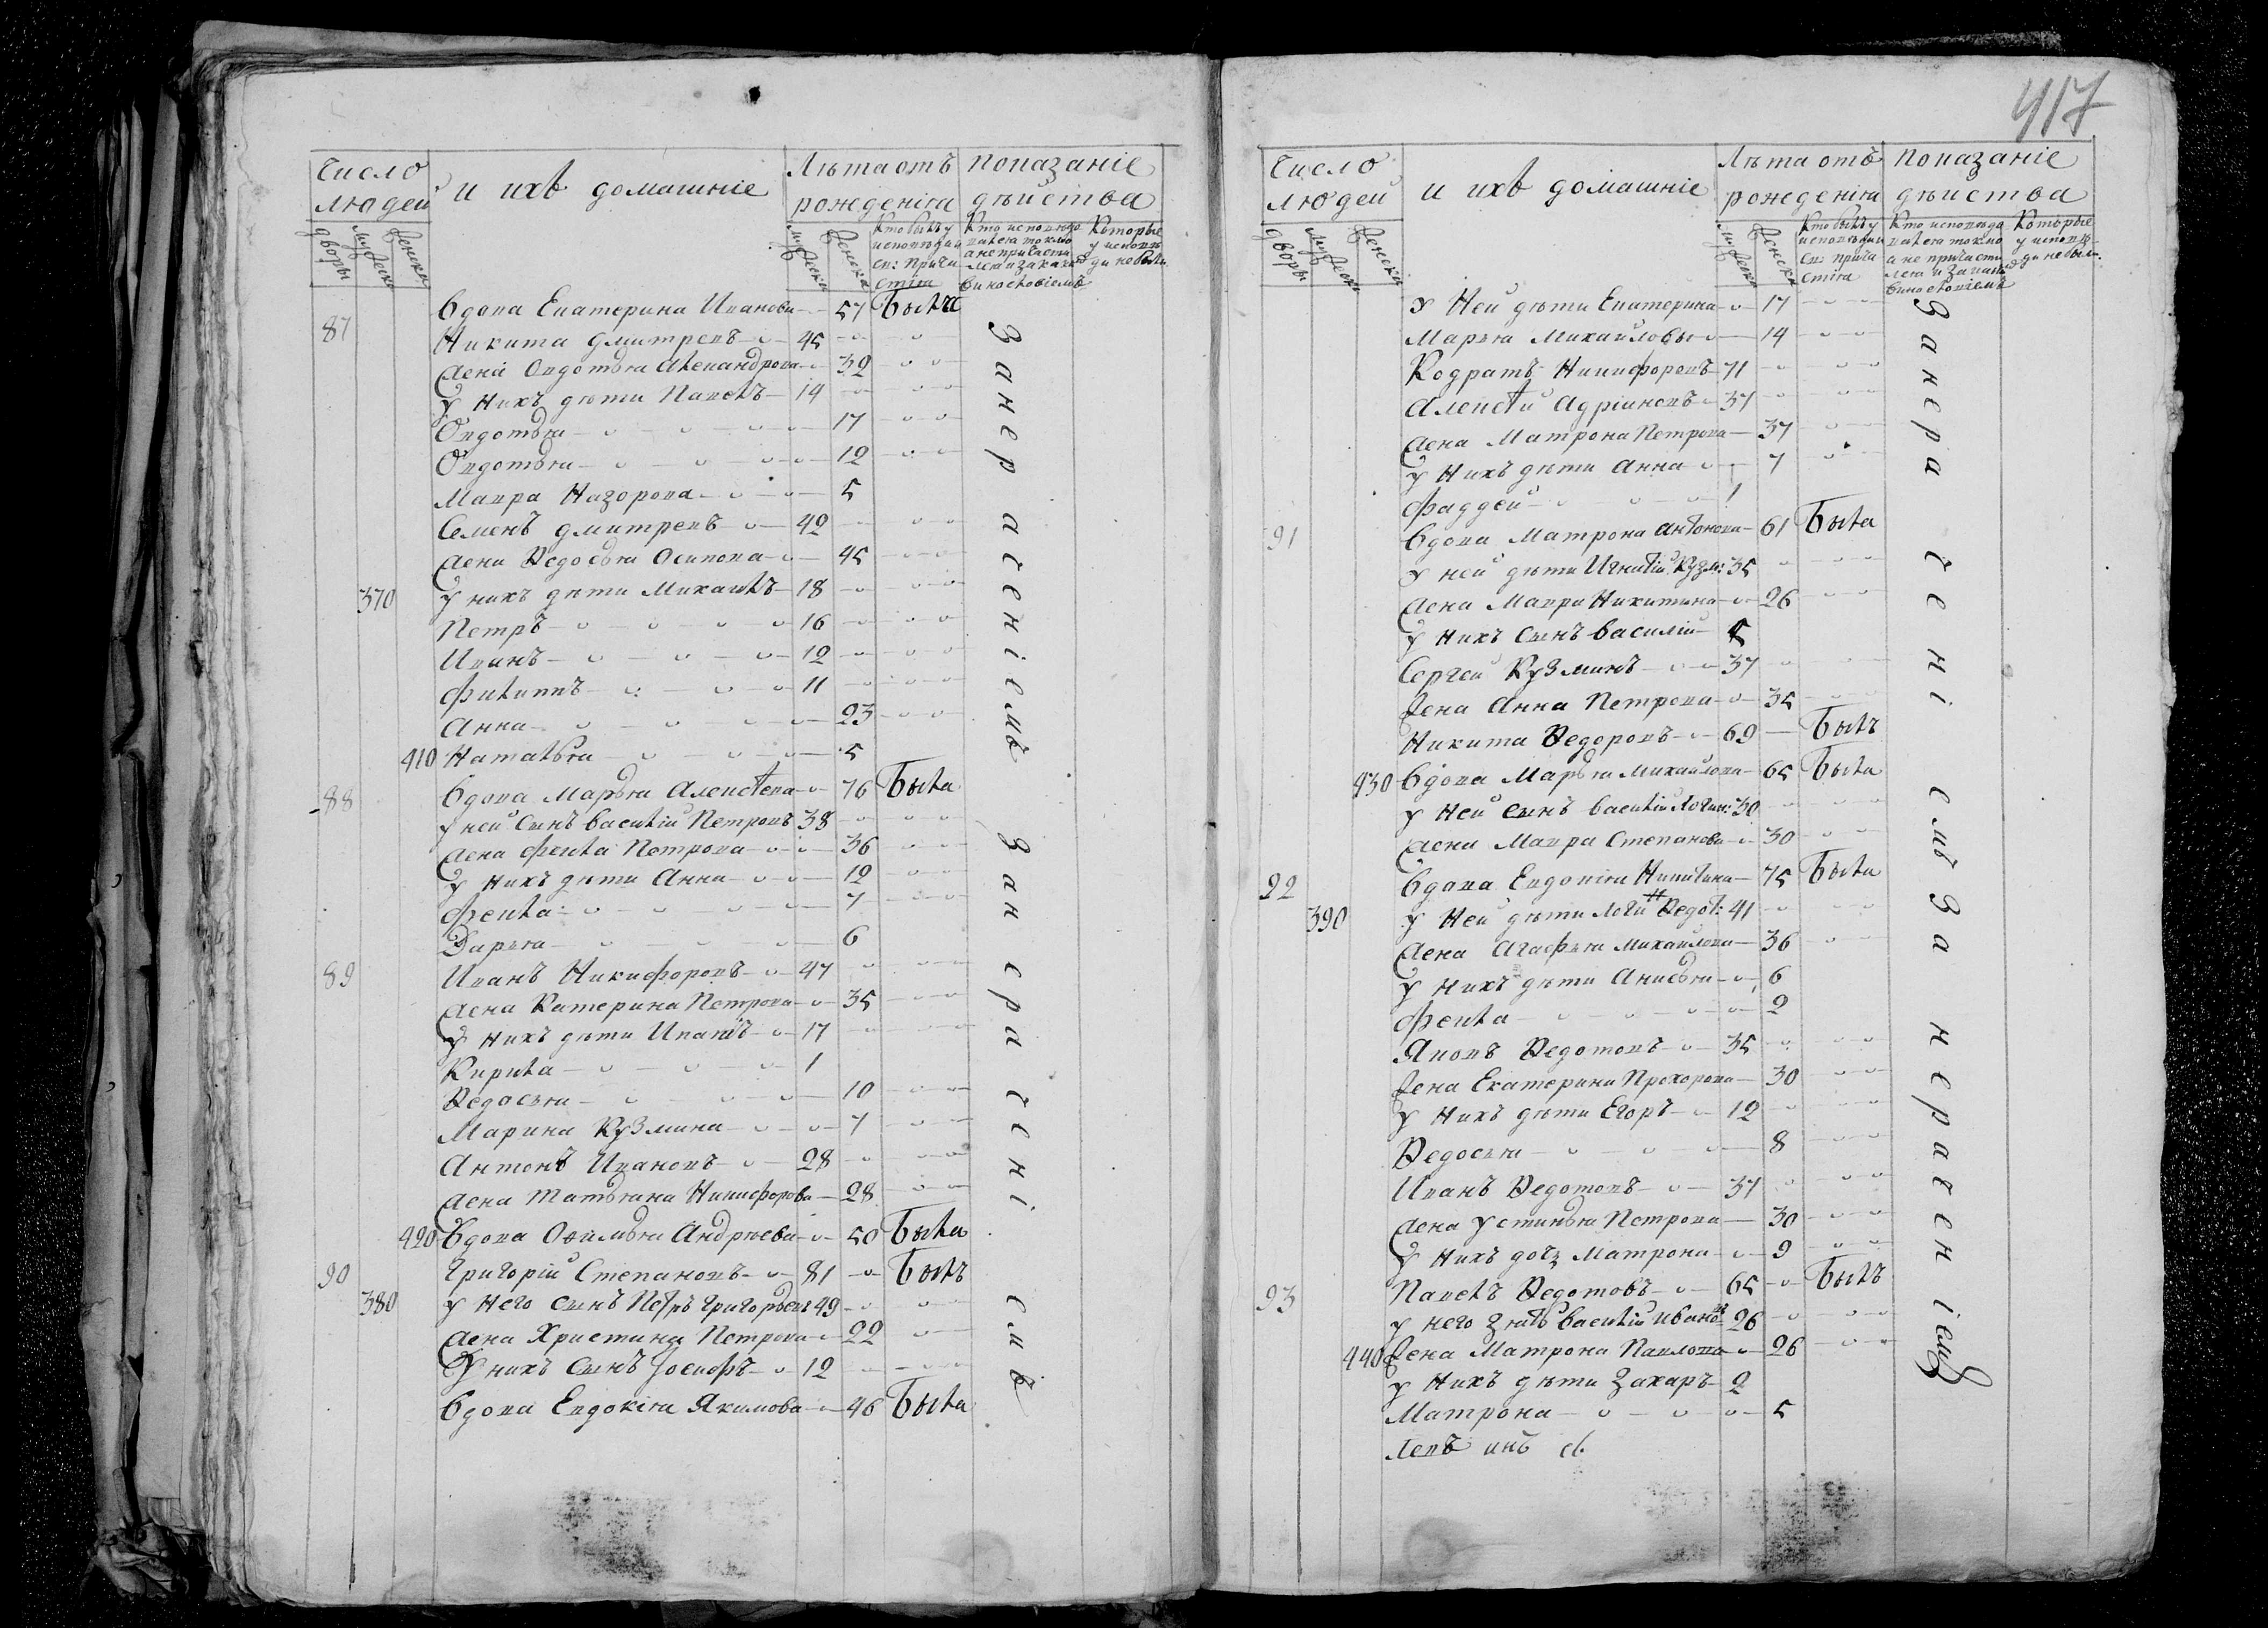 Число людей
и ихъ домашніе
Лѣта отъ рожденія
Показаніе дѣиства
дворы
мужеска
женска
мужеска
женска
Кто былъ у исповѣди и св: причастія
Кто исповѣдался токмо а не причастился и за какимъ винословіемъ
Которые у исповѣди не были
вдова Екатерина Иванова 57 была
87 Никита Дмитревъ 45
жена Овдотья Александрова 39
у нихъ дѣти Павелъ 14
Овдотья 17
Овдотья 12
Мавра Назорова 5
Семенъ Дмитревъ 42
жена Ѳедосья Осипова 45
370 у нихъ дѣти Михаилъ 18
Петръ 16
Иванъ 12
Филиппъ 11
Анна 23
410 Наталья 5
88 вдова Марья Алексѣева 76 была
у ней сынъ Василій Петровъ 38
жена Фекла Петрова 36
у нихъ дѣти Анна 12
Фекла 7
Дарья 6
89 Иванъ Никифоровъ 47
жена Катерина Петрова 35
у нихъ дѣти Игнатъ 17
Кирила 1
Ѳедосья 10
Марина Кузмина 7
Антонъ Ивановъ 28
жена Татьяна Никифорова 28
420 вдова Офимья Андреева 50 была
90 Григорій Степановъ 81 былъ
380 у него сынъ Петръ Григорьевъ 49
жена Христина Петрова 22
у нихъ сынъ Іосифъ 12
вдова Евдокія Якимова 46 была
за нерачениемъ за нерачениемъ
417
Число людей
и ихъ домашніе
Лѣта отъ рожденія
Показаніе дѣиства
дворы
мужеска
женска
мужеска
женска
Кто былъ у исповѣди и св: причастія
Кто исповѣдался токмо а не причастился и за какимъ винословіемъ
Которые у исповѣди не были
у ней дѣти Екатерина 17
Марья Михайловы 14
Кодратъ Никифоровъ 71
Алексѣй Адріановъ 37
жена Матрона Петрова 37
у нихъ дѣти Анна 7
Фаддей 1
91 вдова Матрона Антонова 61 была
у ней дѣти Игнатій Кузм: 35
жена Мавра Никитина 26
у нихъ сынъ Василій 5
Сергей Кузминъ 37
жена Анна Петрова 35
Никита Ѳедоровъ 69 былъ
430 вдова Марья Михайлова 65 была
у ней сынъ Василій Логин: 30
жена Мавра Степанова 30
92 вдова Евдокія Никитина 75 была
390 у ней дѣти Логинъ Ѳедот: 41
жена Агафья Михайлова 36
у нихъ дѣти Анисья 6
Фекла 2
Яковъ Ѳедотовъ 35
жена Екатерина Прохорова 30
у нихъ дѣти Егоръ 12
Ѳедосья 8
Иванъ Ѳедотовъ 37
жена Устинья Петрова 30
у нихъ дочь Матрона 9
93 Павелъ Ѳедотовъ 65 былъ
у него зять Василій Ивановъ 26
440 жена Матрона Павлова 26
у нихъ дѣти Захаръ 2
Матрона 5
за нерачениемъ за нерачениемъ